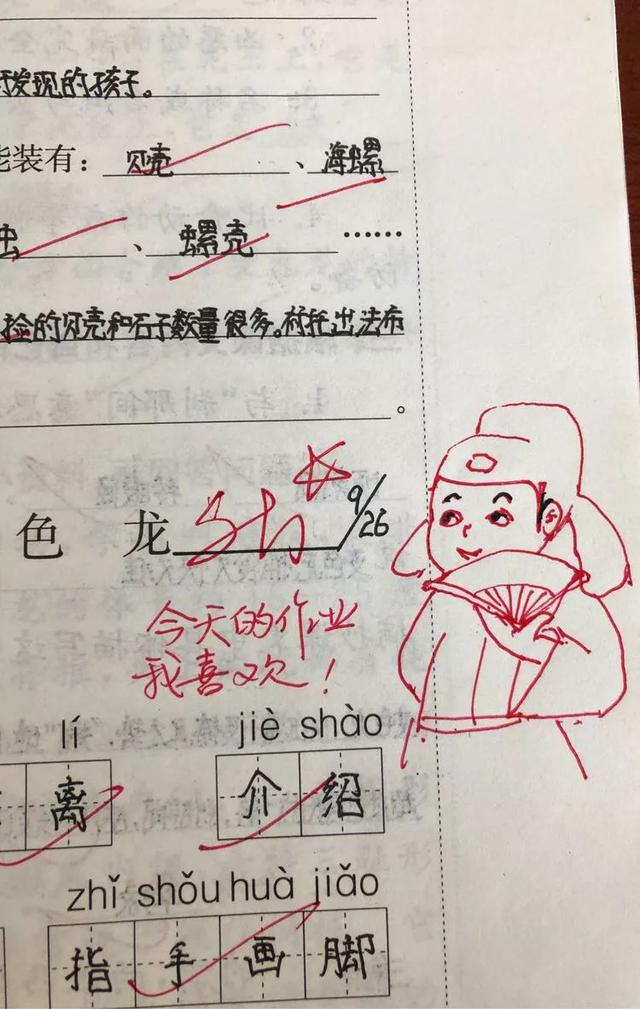 发现的孩子。
装有：贝壳、海螺
、螺壳……
捡的贝壳和石子数量很多。衬托出法布
。
色 龙 9/26
今天的作业
我喜欢！
lí jiè shào
离 介绍
zhǐ shǒu huà jiǎo
指手画脚